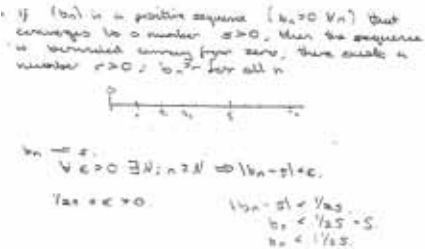 . If (bn) is a positive sequence (bn>0 ∀n) that
converges to a number s>0, then the sequence
is bounded away from zero, there exists a
number r>0 : bn>r for all n
0
bn → s.
∀ ε>0 ∃N; n≥N ⇒ |bn-s|<ε.
|bn - s| < 1/2s.
bn < 1/2s - s.
bn < 1 1/2s.